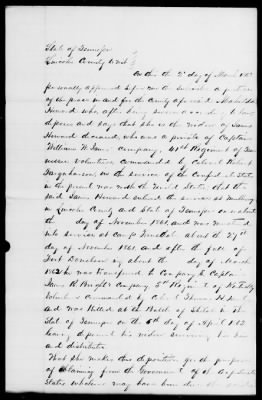 State of Tennessee
Lincoln County
On this the 2d day of March 186
personally appeared before the subscriber a justice
of the peace in and for the County aforesaid
Howard who, after being sworn according to law,
deposes and says that she is the widow of James
Howard deceased, who was a private of Captain
William W. James Company, 41st Regiment of Tenn
essee Volunteers, commanded by Colonel Robert
Farquharson in the service of the Confederate States
in the present war with the United States, that the
said James Howard entered the service at Mulberry
in Lincoln County and State of Tennessee on or about
the day of November 1861, and was mustered
into service at Camp Trousdale about the 27th
day of November 1861 and after the fall of
Fort Donelson on about the day of March
1862 he was transferred to Company Captain
James R. Bright's Company 5th Regiment of Kentucky
Volunteers Commanded by Colonel Thomas H. Hunt,
and was Killed at the Battle of Shiloh in the
State of Tennessee on the 6th day of April 1862
leaving deponent his widow surviving him
and distributee
That she makes this deposition for the purpose
of claiming from the Government of the Confederate
States whatever may have been due the